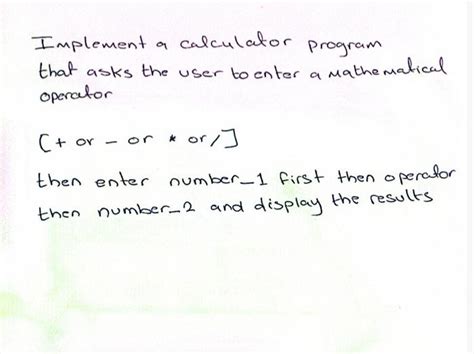 Implement a calculator program
that asks the user to enter a Mathematical
operator
[+ or - or * or /]
then enter number_1 first then operator
then number_2 and display the results